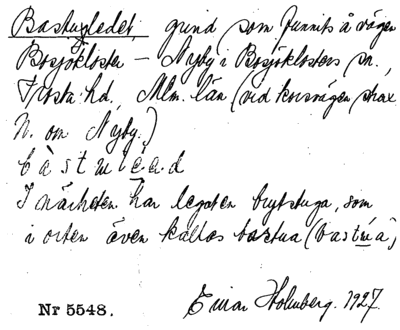 Bastugledet, grind som funnits å vägen
Bosjökloster – Nyby i Bosjöklosters sn.
Frosta hd, Mlm. län (vid korsvägen strax
N. om Nyby.)
I närheten har legat en brytstuga, som
i orten även kallas bastua (
Nr 5548. Einar Holmberg. 1927.